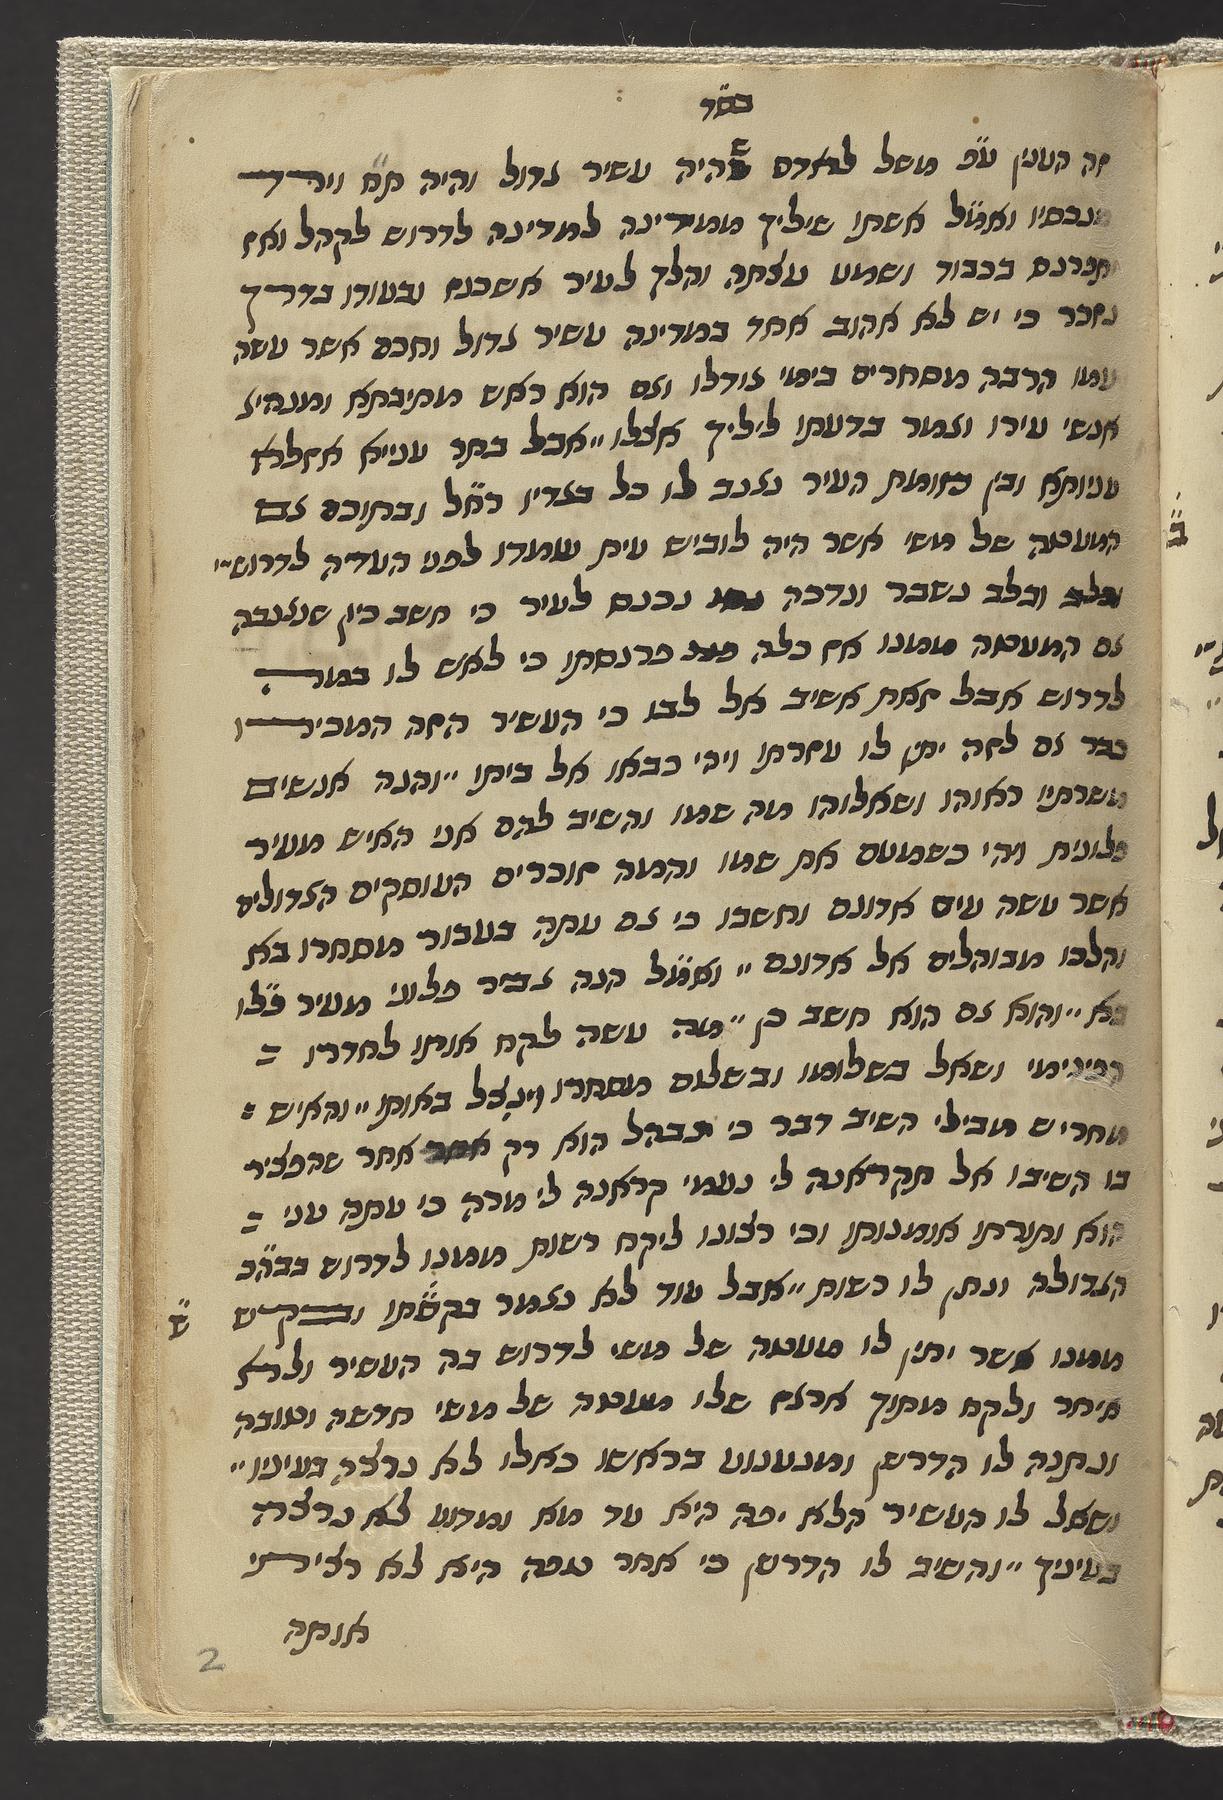 בס״ד
זה הענין ע״פ משל לאדם שהיה עשיר גדול והיה ת״ח וירד
מנכסיו ואמ״ל אשתו שיליך ממידינה למדינה לדרוש לקהל ואז
יתפרנס בכבוד ושמע עצתה והלך לעיר אשכנז ובעודו בדרך
נזכר כי יש לא אהוב אחד במדינה עשיר גדול וחכם אשר עשה
עמו הרבה מסחרים בימי גודלו וגם הוא ראש מתיבתא ומנהיג
אנשי עירו וגמר בדעתו ליליך אצלו ״אבל בתר ענייא אזלא
עניותא ובין חומות העיר נגנב לו כל בגדיו רח״ל ובתוכם גם
המעטה של משי אשר היה לוביש עית עומדו לפני העדה לדרוש״
ובלב נשבר ונדכה נכנס לעיר כי חשב כיון שנגנבה
גם המעטה ממנו אז כלה פרנסתו כי לאש לו במה
לדרוש אבל זאת אשיב אל לבו כי העשיר הזה המכירו
כבר גם לזה יתן לו עזרתו ויהי כבאו אל ביתו ״והנה אנשים
משרתיו ראוהו ושאלוהו מה שמו והשיב להם אני האיש מעיר
פלונית ויהי כשמעם את שמו והמה זוכרים העוסקים הגדולים
אשר עשה עים אדונם וחשבו כי גם עתה בעבור מסחרו בא
והלכו מבוהלים אל אדונם ״ ואמ״ל הנה גביר פלוני מעיר פ״לו
בא ״והוא גם הוא חשב כן ״מה עשה לקח אותו לחדרו =
הפינימי ושאל בשלומו ובשלום מסחרו ויגצל באותו ״והאיש =
מחריש מבילי השיב דבר כי תבהל הוא רק אחר שהפציר
בו השיבו אל תקראנה לי נעמי קראנה לי מרה כי עתה עני =
הוא ותורתו אומנותו וכי רצונו ליקח רשות ממנו לדרוש בבה״כ
הגדולה ונתן לו רשות ״אבל עוד לא נגמר בקשתו ובקש
ש״
ממנו אשר יתין לו מעטה של משי לדרוש בה העשיר ולא
איחר ולקח מתוך ארגז שלו מעטה של משי חדשה וטובה
ונתנה לו הדרשן ומנענוע בראשו כאלו לא נרצה בעיניו״
ושאל לו העשיר הלא יפה היא עד מא ומדוע לא נרצה
בעיניך ״והשיב לו הדרשן כי אחר טפה היא לא רציתי
אותה
2